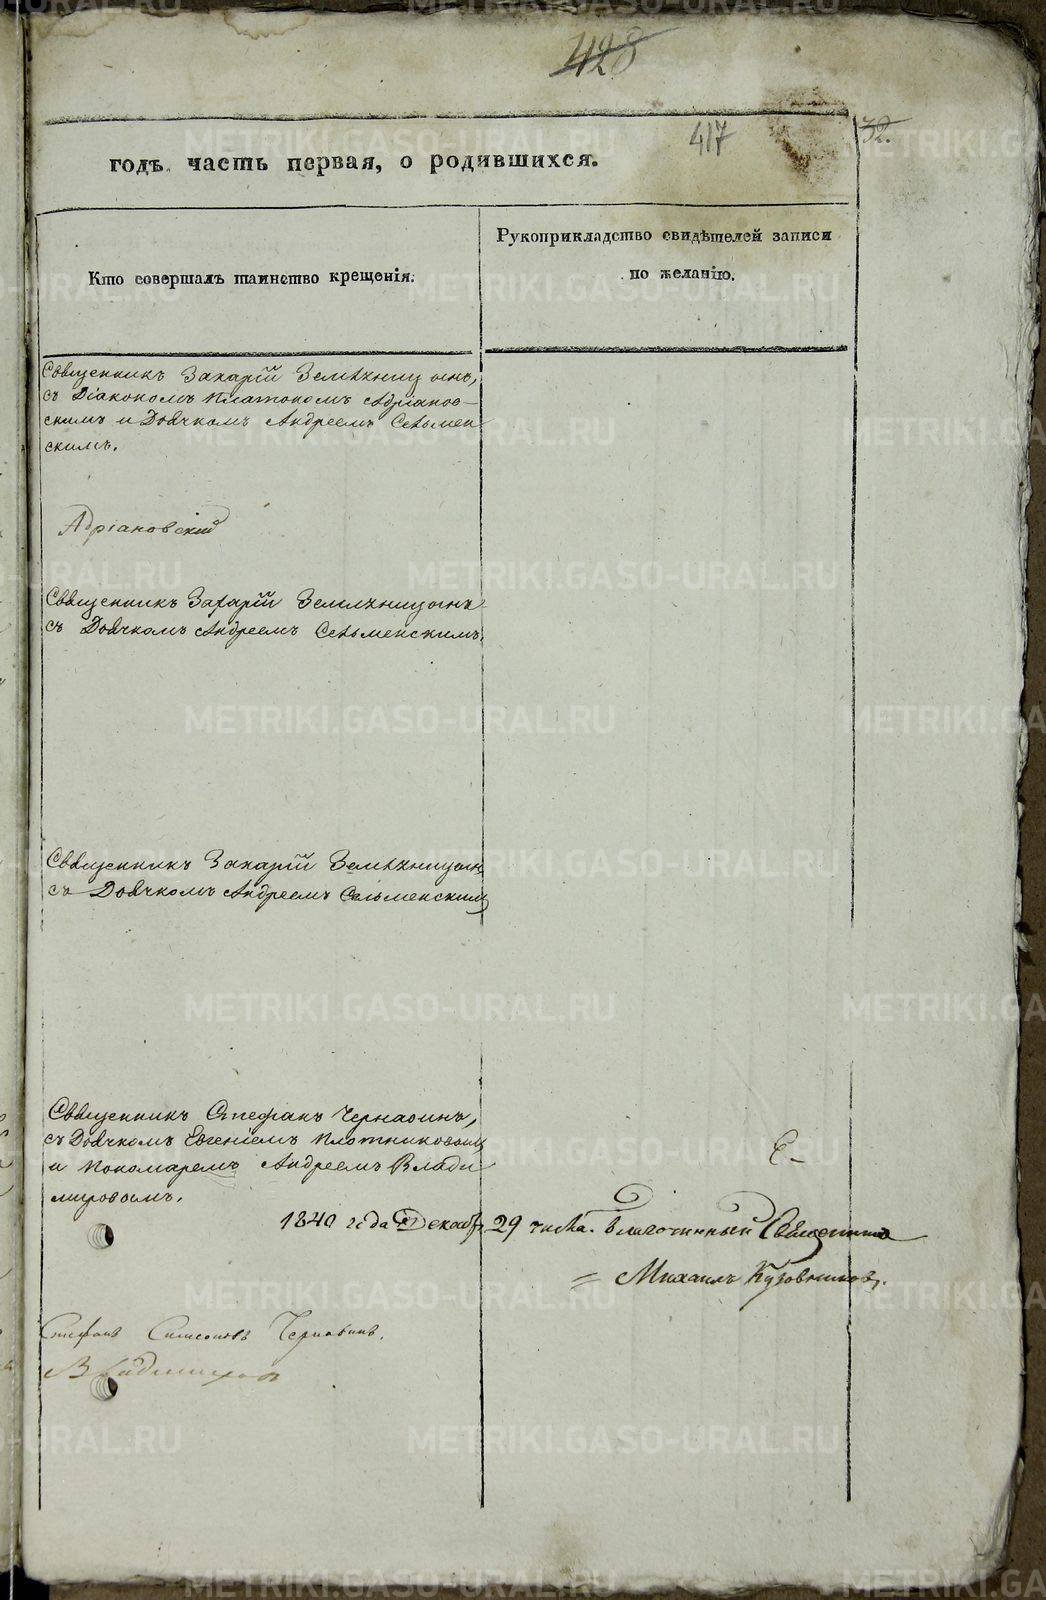 428
417
32.
годъ часть первая, о родившихся.
Кто совершалъ таинство крещенія.
Рукоприкладство свидѣтелей записи
по желанію.
Священникъ Захарій
съ Діакономъ Платономъ Адріанов-
скимъ и Дьячкомъ Андреемъ Сельмен
скимъ.
Адріановскій
Священникъ Захарій
съ Дьячкомъ Андреемъ Сельменскимъ.
Священникъ Захарій
съ Дьячкомъ Андреемъ Сельменскимъ
Священникъ Стефанъ Чернавинъ,
съ Дьячкомъ Евгеніемъ Плотниковымъ
и Пономаремъ Андреемъ Влади
мировымъ.
1840 года Декабр. 29 числа. Благочинный Священникъ
Михаилъ
Стефанъ Симеоновъ Чернавинъ.
Владимировъ
METRIKI.GASO-URAL.RU